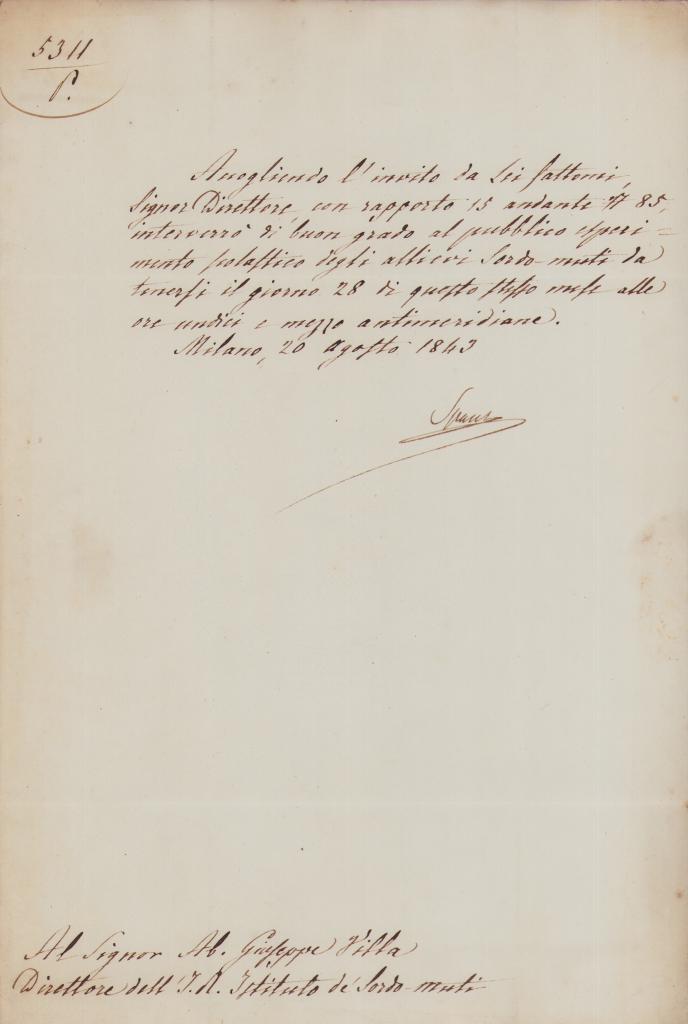 5311
P.
Accogliendo l'invito da Lei fattomi,
Signor Direttore, con rapporto 15 andante N 85,
interverrò di buon grado al pubblico esperi=
mento scolastico degli allievi Sordo-muti da
tenersi il giorno 28 di questo stesso mese alle
ore undici e mezzo antimeridiane.
Milano, 20 agosto 1843
Al Signor Ab. Giuseppe Villa
Direttore dell' I. R. Istituto de' Sordo-muti